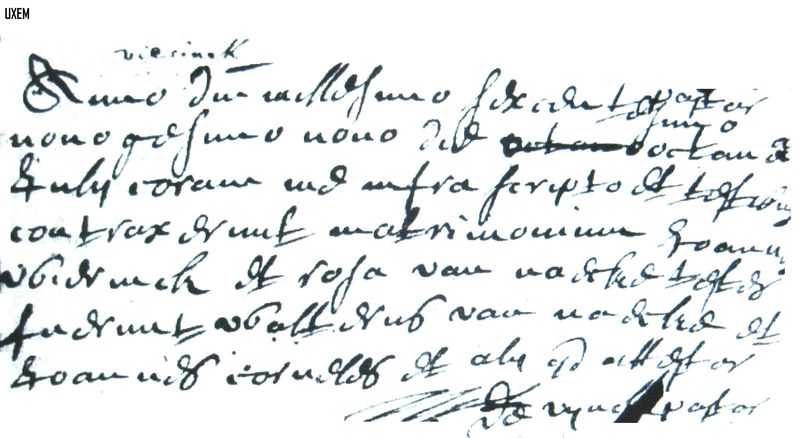 UXEM
vierinck
Anno dni millesimo sexcentesimo
nonogesimo nono die octava
Iuly coram me infra scripto et testibus
contraxerunt matrimonium Joannes
et rosa van naekee testes
fuerunt Walterus van naekee et
Joannes cornelis et alij qd attestor
De pastor